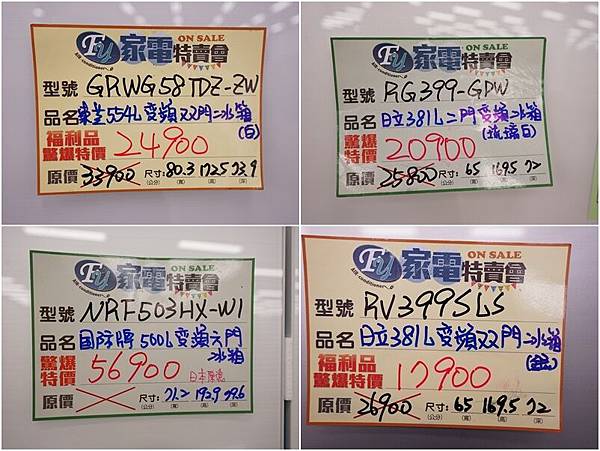 Fu 家電特賣會 ON SALE
型號 GRWG58TDZ-ZW
品名 東芝554L變頻双門冰箱(白)
福利品 驚爆特價 24900
原價 33900 尺寸:80.3 172.5 73.9
(公分) (寬) (高) (深)
Fu 家電特賣會 ON SALE
型號 RG399-GPW
品名 日立381L二門變頻冰箱(琉璃白)
福利品 驚爆特價 20900
原價 25800 尺寸:65 169.5 72
(公分) (寬) (高) (深)
Fu 家電特賣會 ON SALE
型號 NRF503HX-W1
品名 国際牌500L變頻六門冰箱
驚爆特價 56900 日本原裝
原價 尺寸:
(公分) (寬) (高) (深)
Fu 家電特賣會 ON SALE
型號 RV399SLS
品名 日立381L變頻双門冰箱
福利品 驚爆特價 17900
原價 26900 尺寸:65 169.5 72
(公分) (寬) (高) (深)